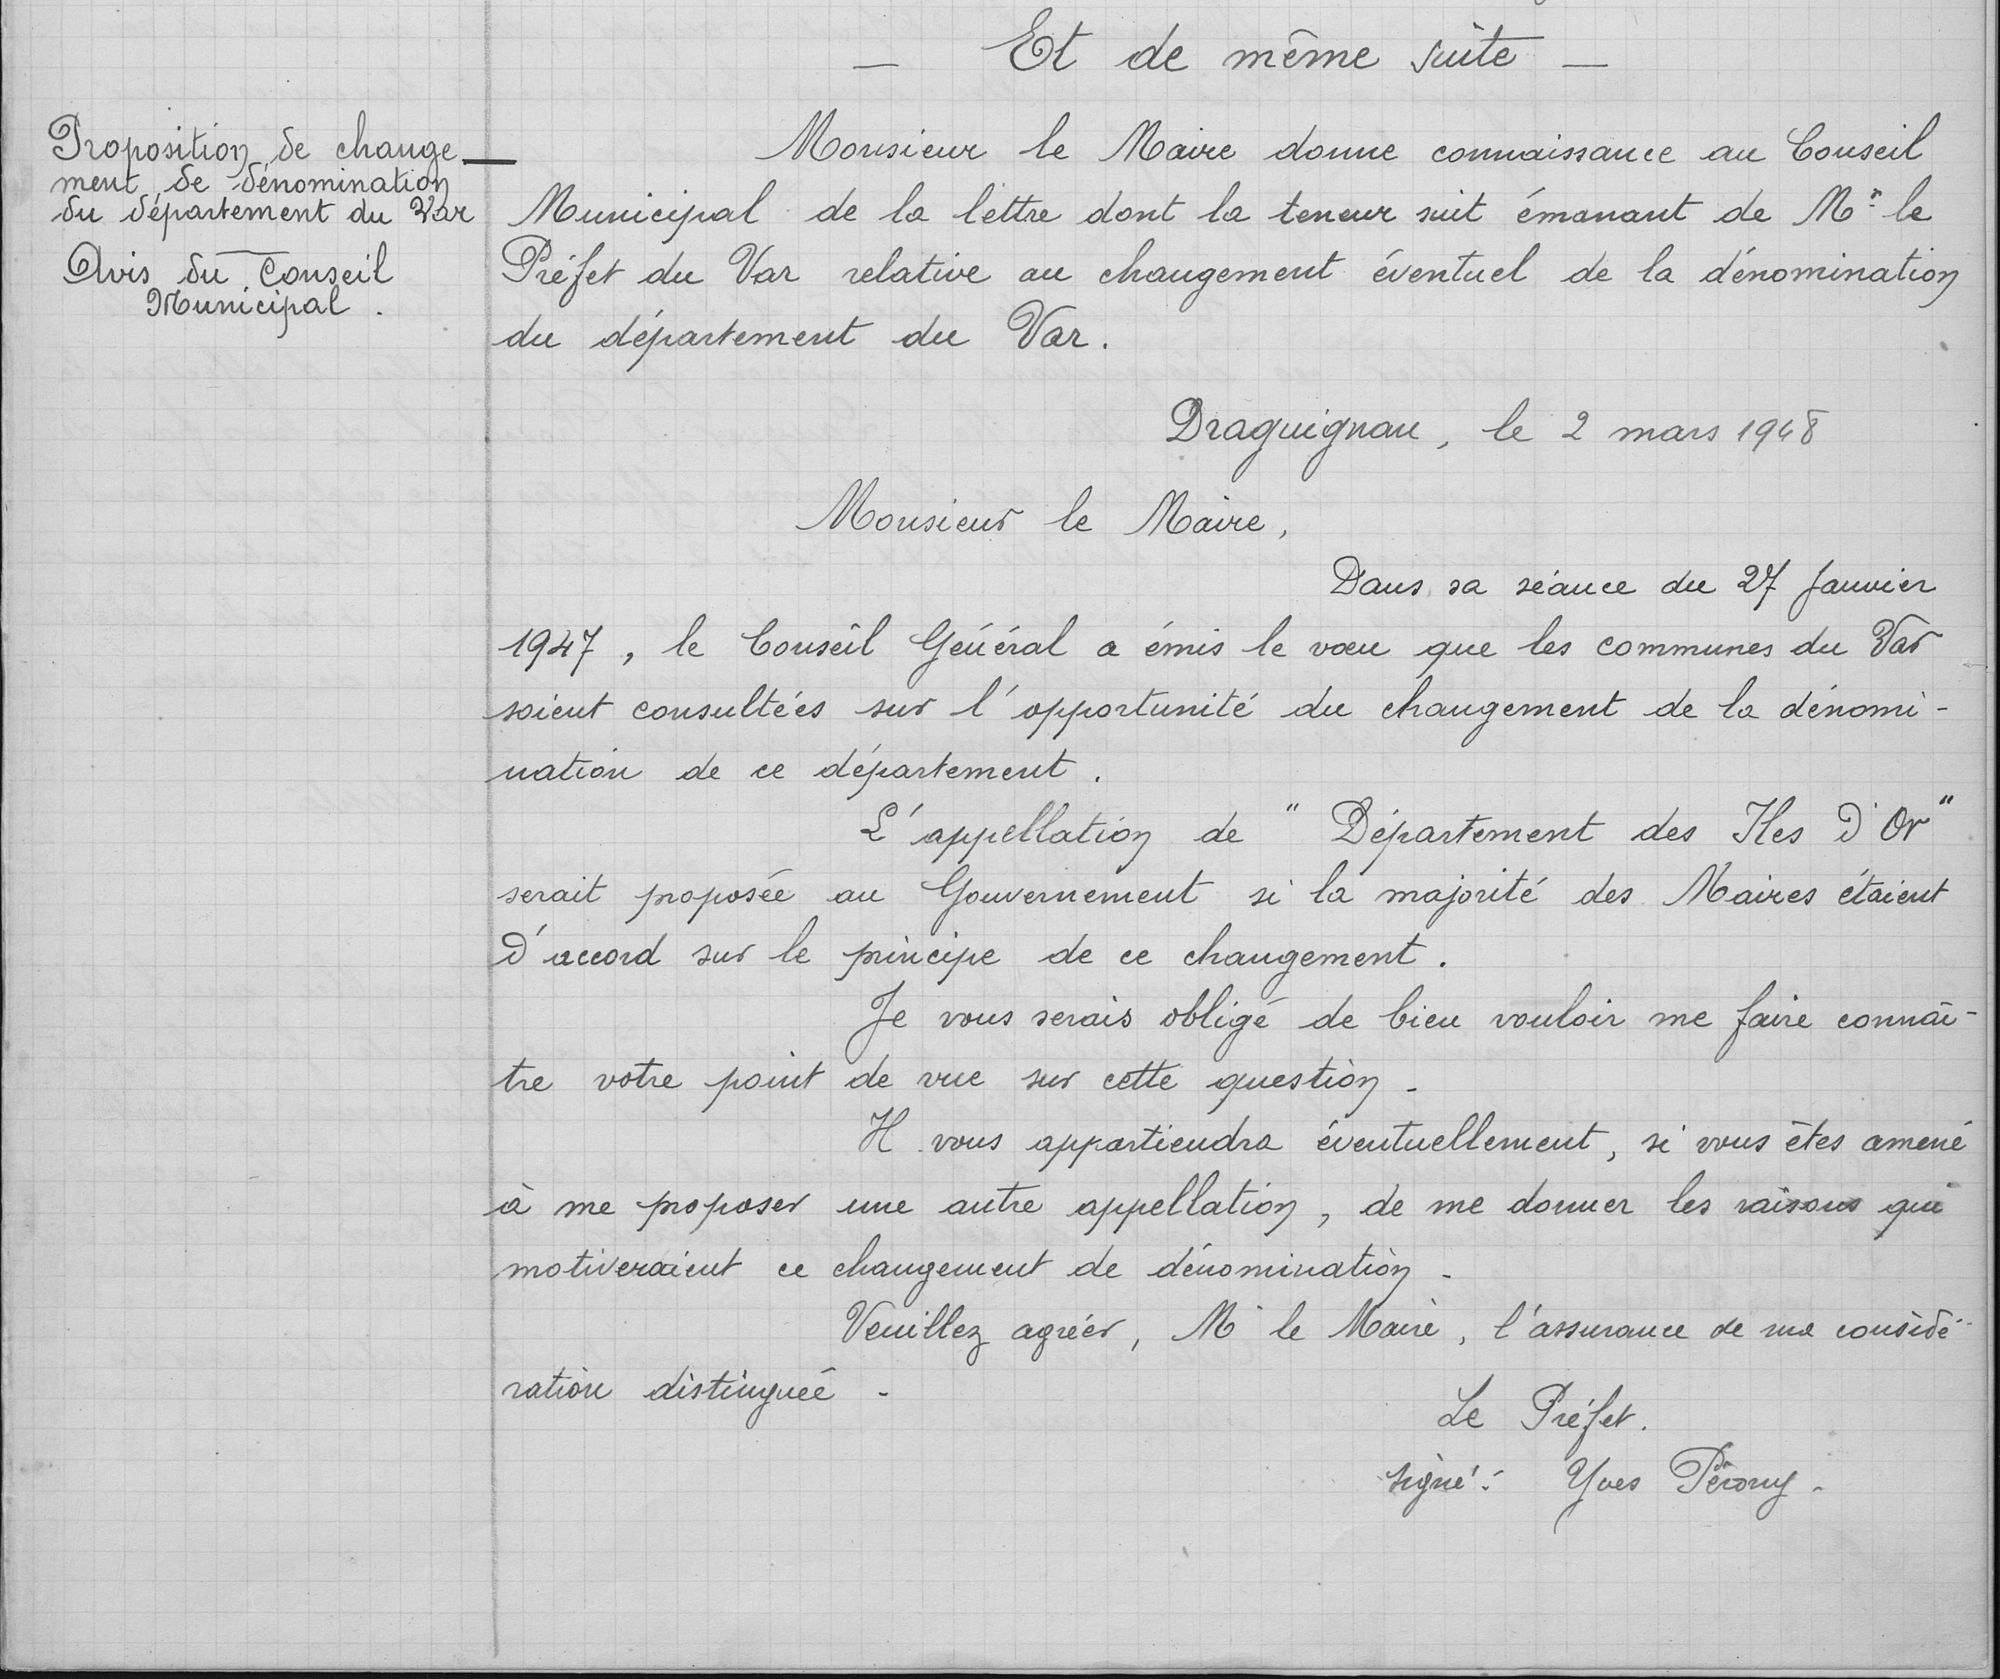 — Et de même suite —
Proposition de change-
ment de dénomination
du département du Var
Avis du Conseil
Municipal.
Monsieur le Maire donne connaissance au Conseil
Municipal de la lettre dont la teneur suit émanant de Mr le
Préfet du Var relative au changement éventuel de la dénomination
du département du Var.
Draguignan, le 2 mars 1948
Monsieur le Maire,
Dans sa séance du 27 Janvier
1947, le Conseil Général a émis le vœu que les communes du Var
soient consultées sur l'opportunité du changement de la dénomi-
nation de ce département.
L'appellation de "Département des Iles D'Or"
serait proposée au Gouvernement si la majorité des Maires étaient
D'accord sur le principe de ce changement.
Je vous serais obligé de bien vouloir me faire connaî-
tre votre point de vue sur cette question -
Il vous appartiendra éventuellement, si vous êtes amené
à me proposer une autre appellation, de me donner les raisons qui
motiveraient ce changement de dénomination -
Veuillez agréer, Mr le Maire, l'assurance de ma considé-
ration distinguée -
Le Préfet.
signé : Yves Pérony -